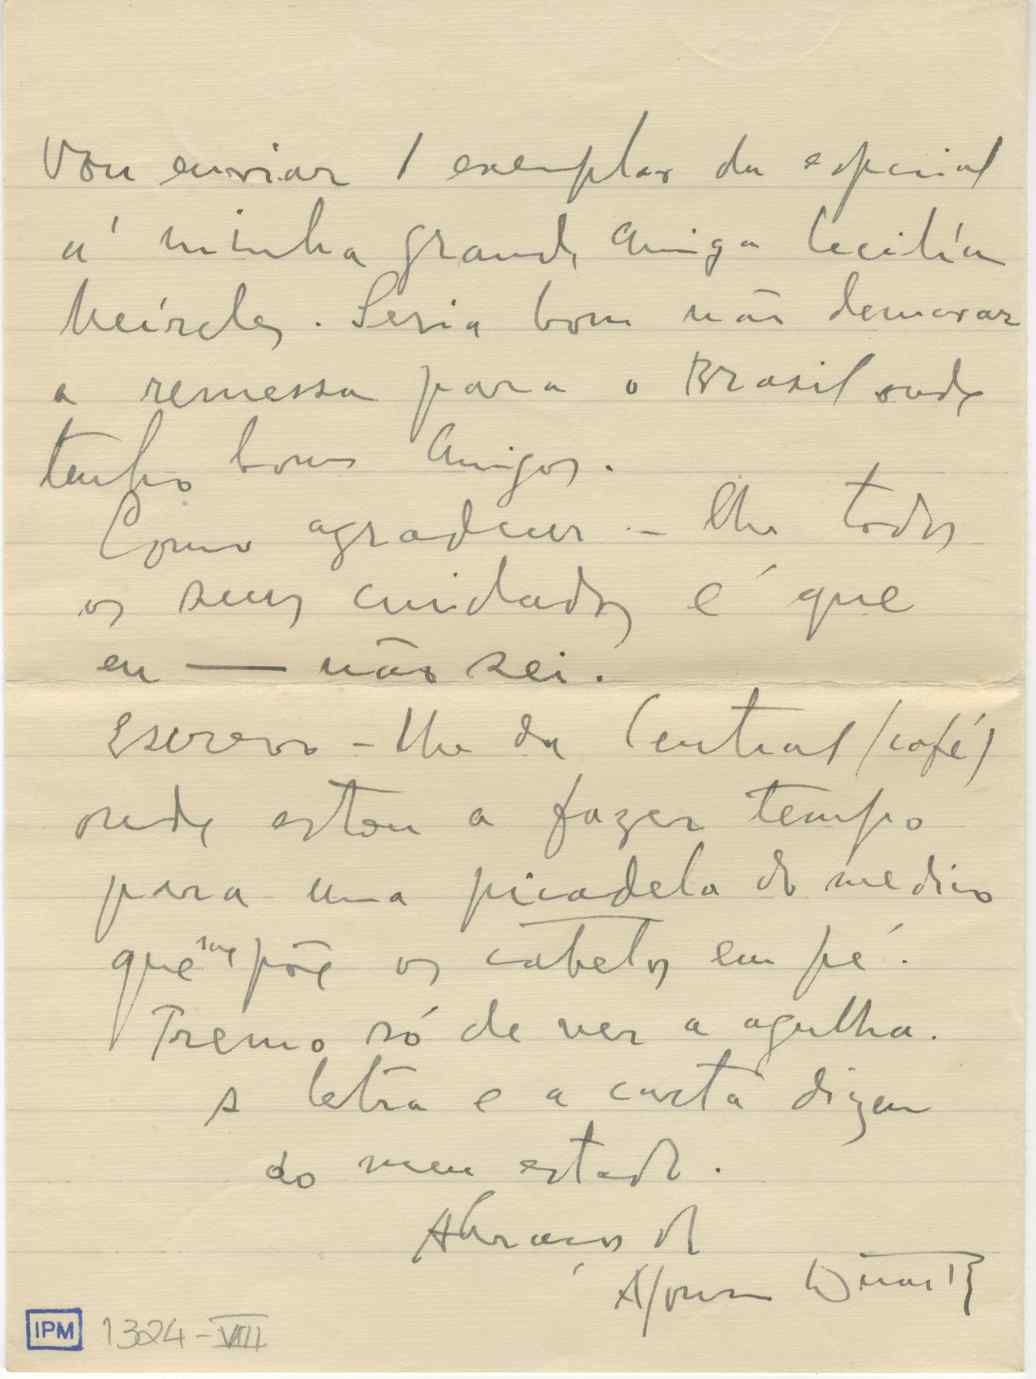 Vou enviar 1 exemplar da especial
á minha grande Amiga Cecilía
Meíreles. Seria bom não demorar
a remessa para o Brasil onde
tenho bons Amigos.
Como agradecer-lhe todos
os seus cuidados é que
eu — não sei.
Escrevo-lhe da Central (café)
onde estou a fazer tempo
para uma picadela do medico
que me põe os cabelos em pé.
Tremo só de ver a agulha.
A letra e a carta dizem
do meu estado.
Abraços de
Afonso Duarte
IPM 1324-VIII